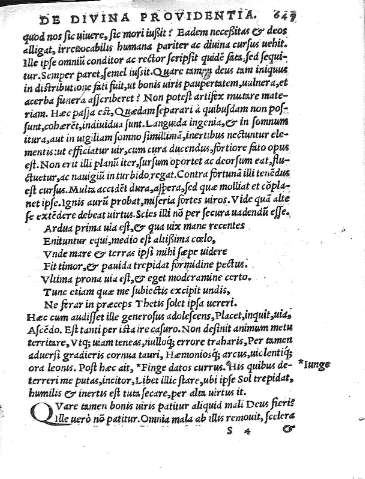 DE DIVINA PROVIDENTIA. 647
quod nos sic uiuere, sic mori iussit? Eadem necessitas & deos
alligat, irreuocabilis humana pariter ac diuina cursus uehit.
Ille ipse omniũ conditor ac rector scripsit quidẽ fata, sed sequi-
tur. Semper paret, semel iussit. Quare tamen deus tam iniquus
in distributione fati fuit, ut bonis uiris paupertatem, uulnera, et
acerba funera asscriberet? Non potest artifex mutare mate-
riam. Hæc passa est, Quædam separari à quibusdam non pos-
sunt, cohærẽt, indiuidua sunt. Languida ingenia, & in somnum
itura, aut in uigiliam somno simillimã, inertibus nectuntur ele-
mentis: ut efficiatur uir, cum cura ducendus, fortiore fato opus
est. Non erit illi planũ iter, sursum oportet ac deorsum eat, flu-
ctuetur, ac nauigiũ in turbido regat. Contra fortunã illi tenẽdus
est cursus. Multa accidẽt dura, aspera, sed quæ molliat et cõpla-
net ipse. Ignis aurũ probat, miseria fortes uiros. Vide quã alte
se extẽdere debeat uirtus. Scies illi nõ per secura uadendũ esse.
Ardua prima uia est, & qua uix mane recentes
Enituntur equi, medio est altissima cœlo,
Vnde mare & terras ipsi mihi sæpe uidere
Fit timor, & pauida trepidat formidine pectus.
Vltima prona uia est, & eget moderamine certo.
Tunc etiam quæ me subiectis excipit undis,
Ne ferar in præceps Thetis solet ipsa uereri.
Hæc cum audisset ille generosus adolescens, Placet, inquit, uia,
Ascẽdo. Est tanti per ista ire casuro. Non desinit animum metu
territare, Vtq; uiam teneas, nulloq; errore traharis, Per tamen
aduersi gradieris cornua tauri, Hæmoniosq; arcus, uiolentiq;
ora leonis. Post hæc ait, *Finge datos currus. His quibus de- *Iunge
terreri me putas, incitor, Libet illic stare, ubi ipse Sol trepidat,
humilis & inertis est tuta secare, per alta uirtus it.
QVare tamen bonis uiris patitur aliquid mali Deus fieri?
Ille uerò nõ patitur. Omnia mala ab illis remouit, scelera
S 4 &